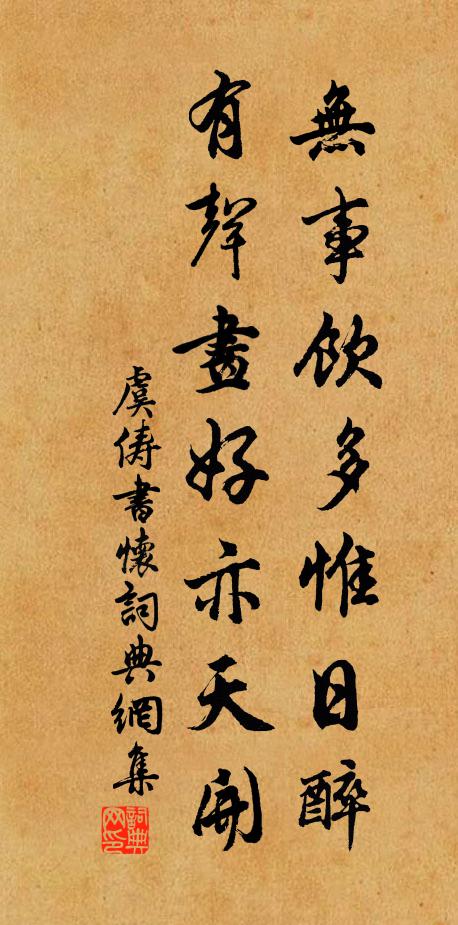 無事飲多惟日醉
有聲畫好亦天開
虞儔書懷詞典網集
詞典網印